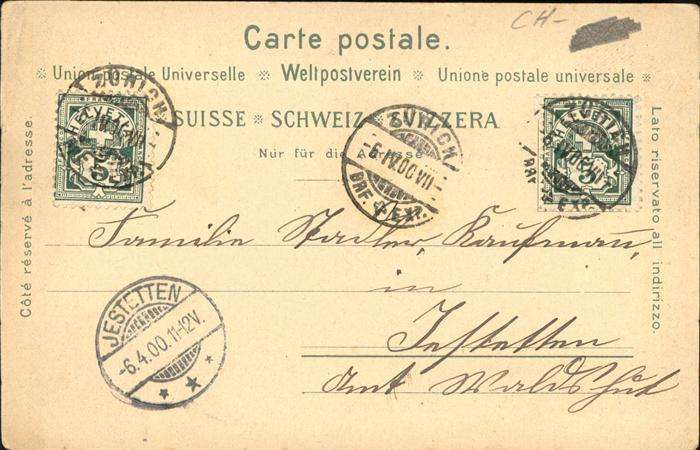 CH-
Carte postale.
Union postale Universelle ※ Weltpostverein ※ Unione postale universale
SUISSE ※ SCHWEIZ ※ SVIZZERA
Nur für die
Côté réservé à l'adresse.
Lato riservato all indirizzo.
ZÜRICH
HELVETIA
5
ZÜRICH
-6.IV.00.VII-
BRF. EXP.
HELVETIA
5
Familie Stadler, Kaufmann,
in
Jestetten
Amt Waldshut
JESTETTEN
-6.4.00.11-12V.